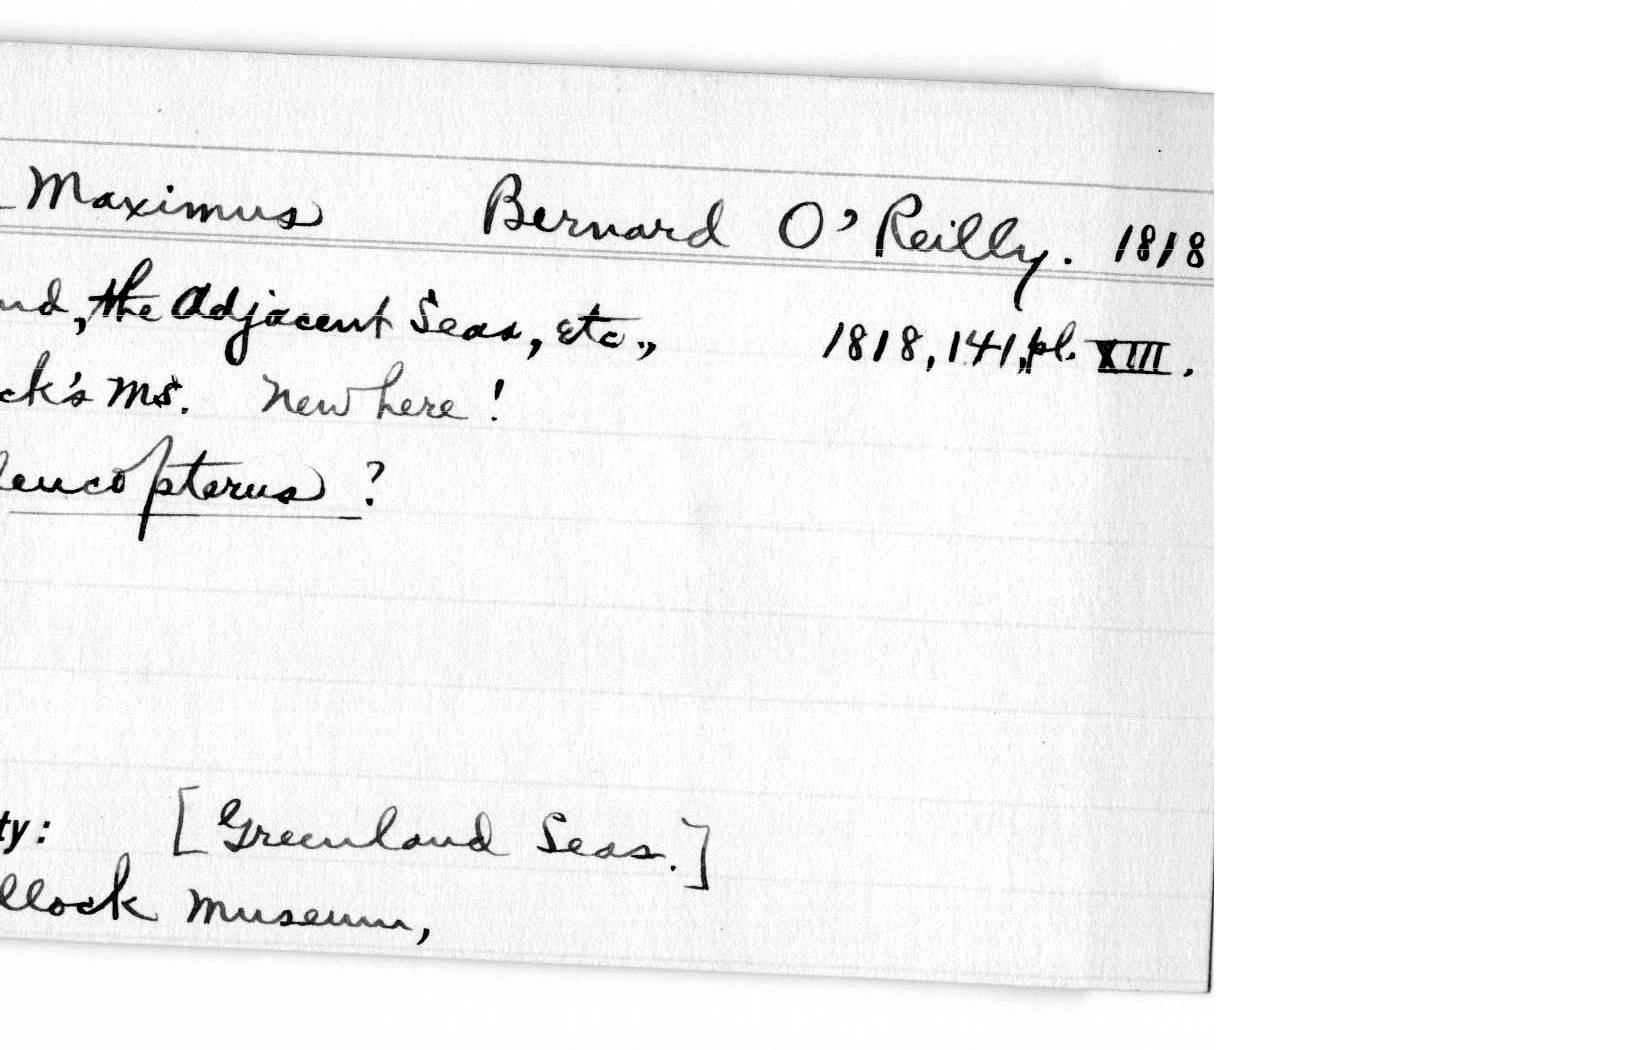 Maximus Bernard O'Reilly. 1818
nd, the Adjacent Seas, etc., 1818, 141, pl. XIII.
ck's MS. New here!
leucopterus ?
ty: [Greenland Seas.]
llock Museum,